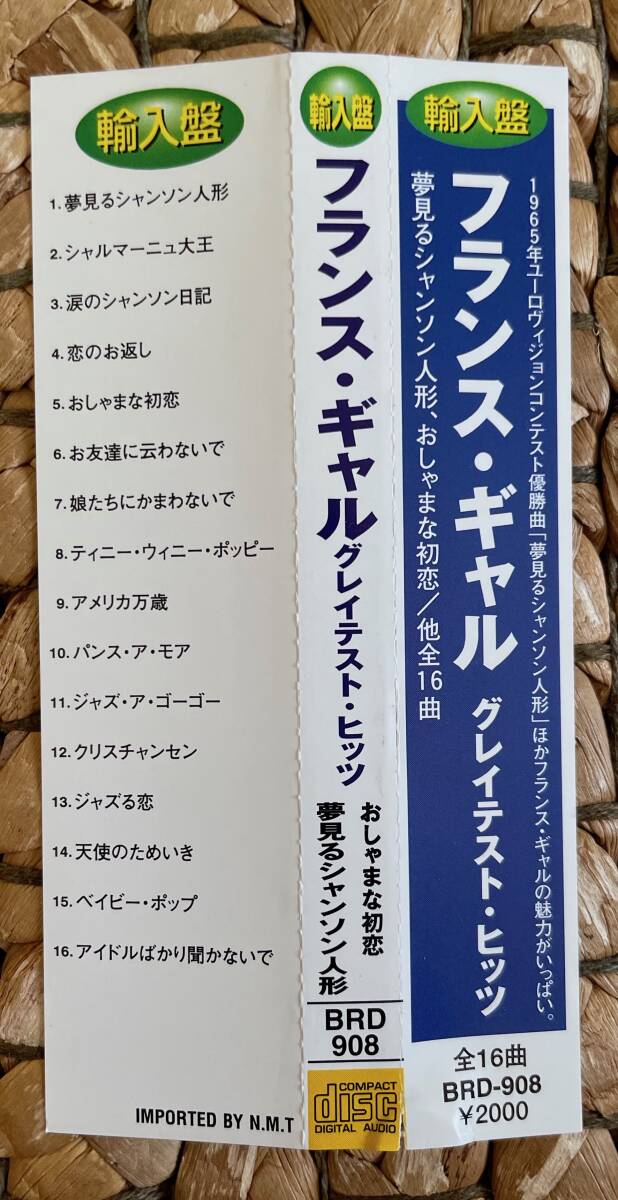 輸入盤
1.夢見るシャンソン人形
2.シャルマーニュ大王
3.涙のシャンソン日記
4.恋のお返し
5.おしゃまな初恋
6.お友達に云わないで
7.娘たちにかまわないで
8.ティニー・ウィニー・ポッピー
9.アメリカ万歳
10.パンス・ア・モア
11.ジャズ・ア・ゴーゴー
12.クリスチャンセン
13.ジャズる恋
14.天使のためいき
15.ベイビー・ポップ
16.アイドルばかり聞かないで
IMPORTED BY N.M.T
輸入盤
フランス・ギャル グレイテスト・ヒッツ
おしゃまな初恋
夢見るシャンソン人形
BRD
908
COMPACT
disc
DIGITAL AUDIO
輸入盤
1965年ユーロヴィジョンコンテスト優勝曲「夢見るシャンソン人形」ほかフランス・ギャルの魅力がいっぱい。
フランス・ギャル グレイテスト・ヒッツ
夢見るシャンソン人形、おしゃまな初恋/他全16曲
全16曲
BRD-908
¥2000